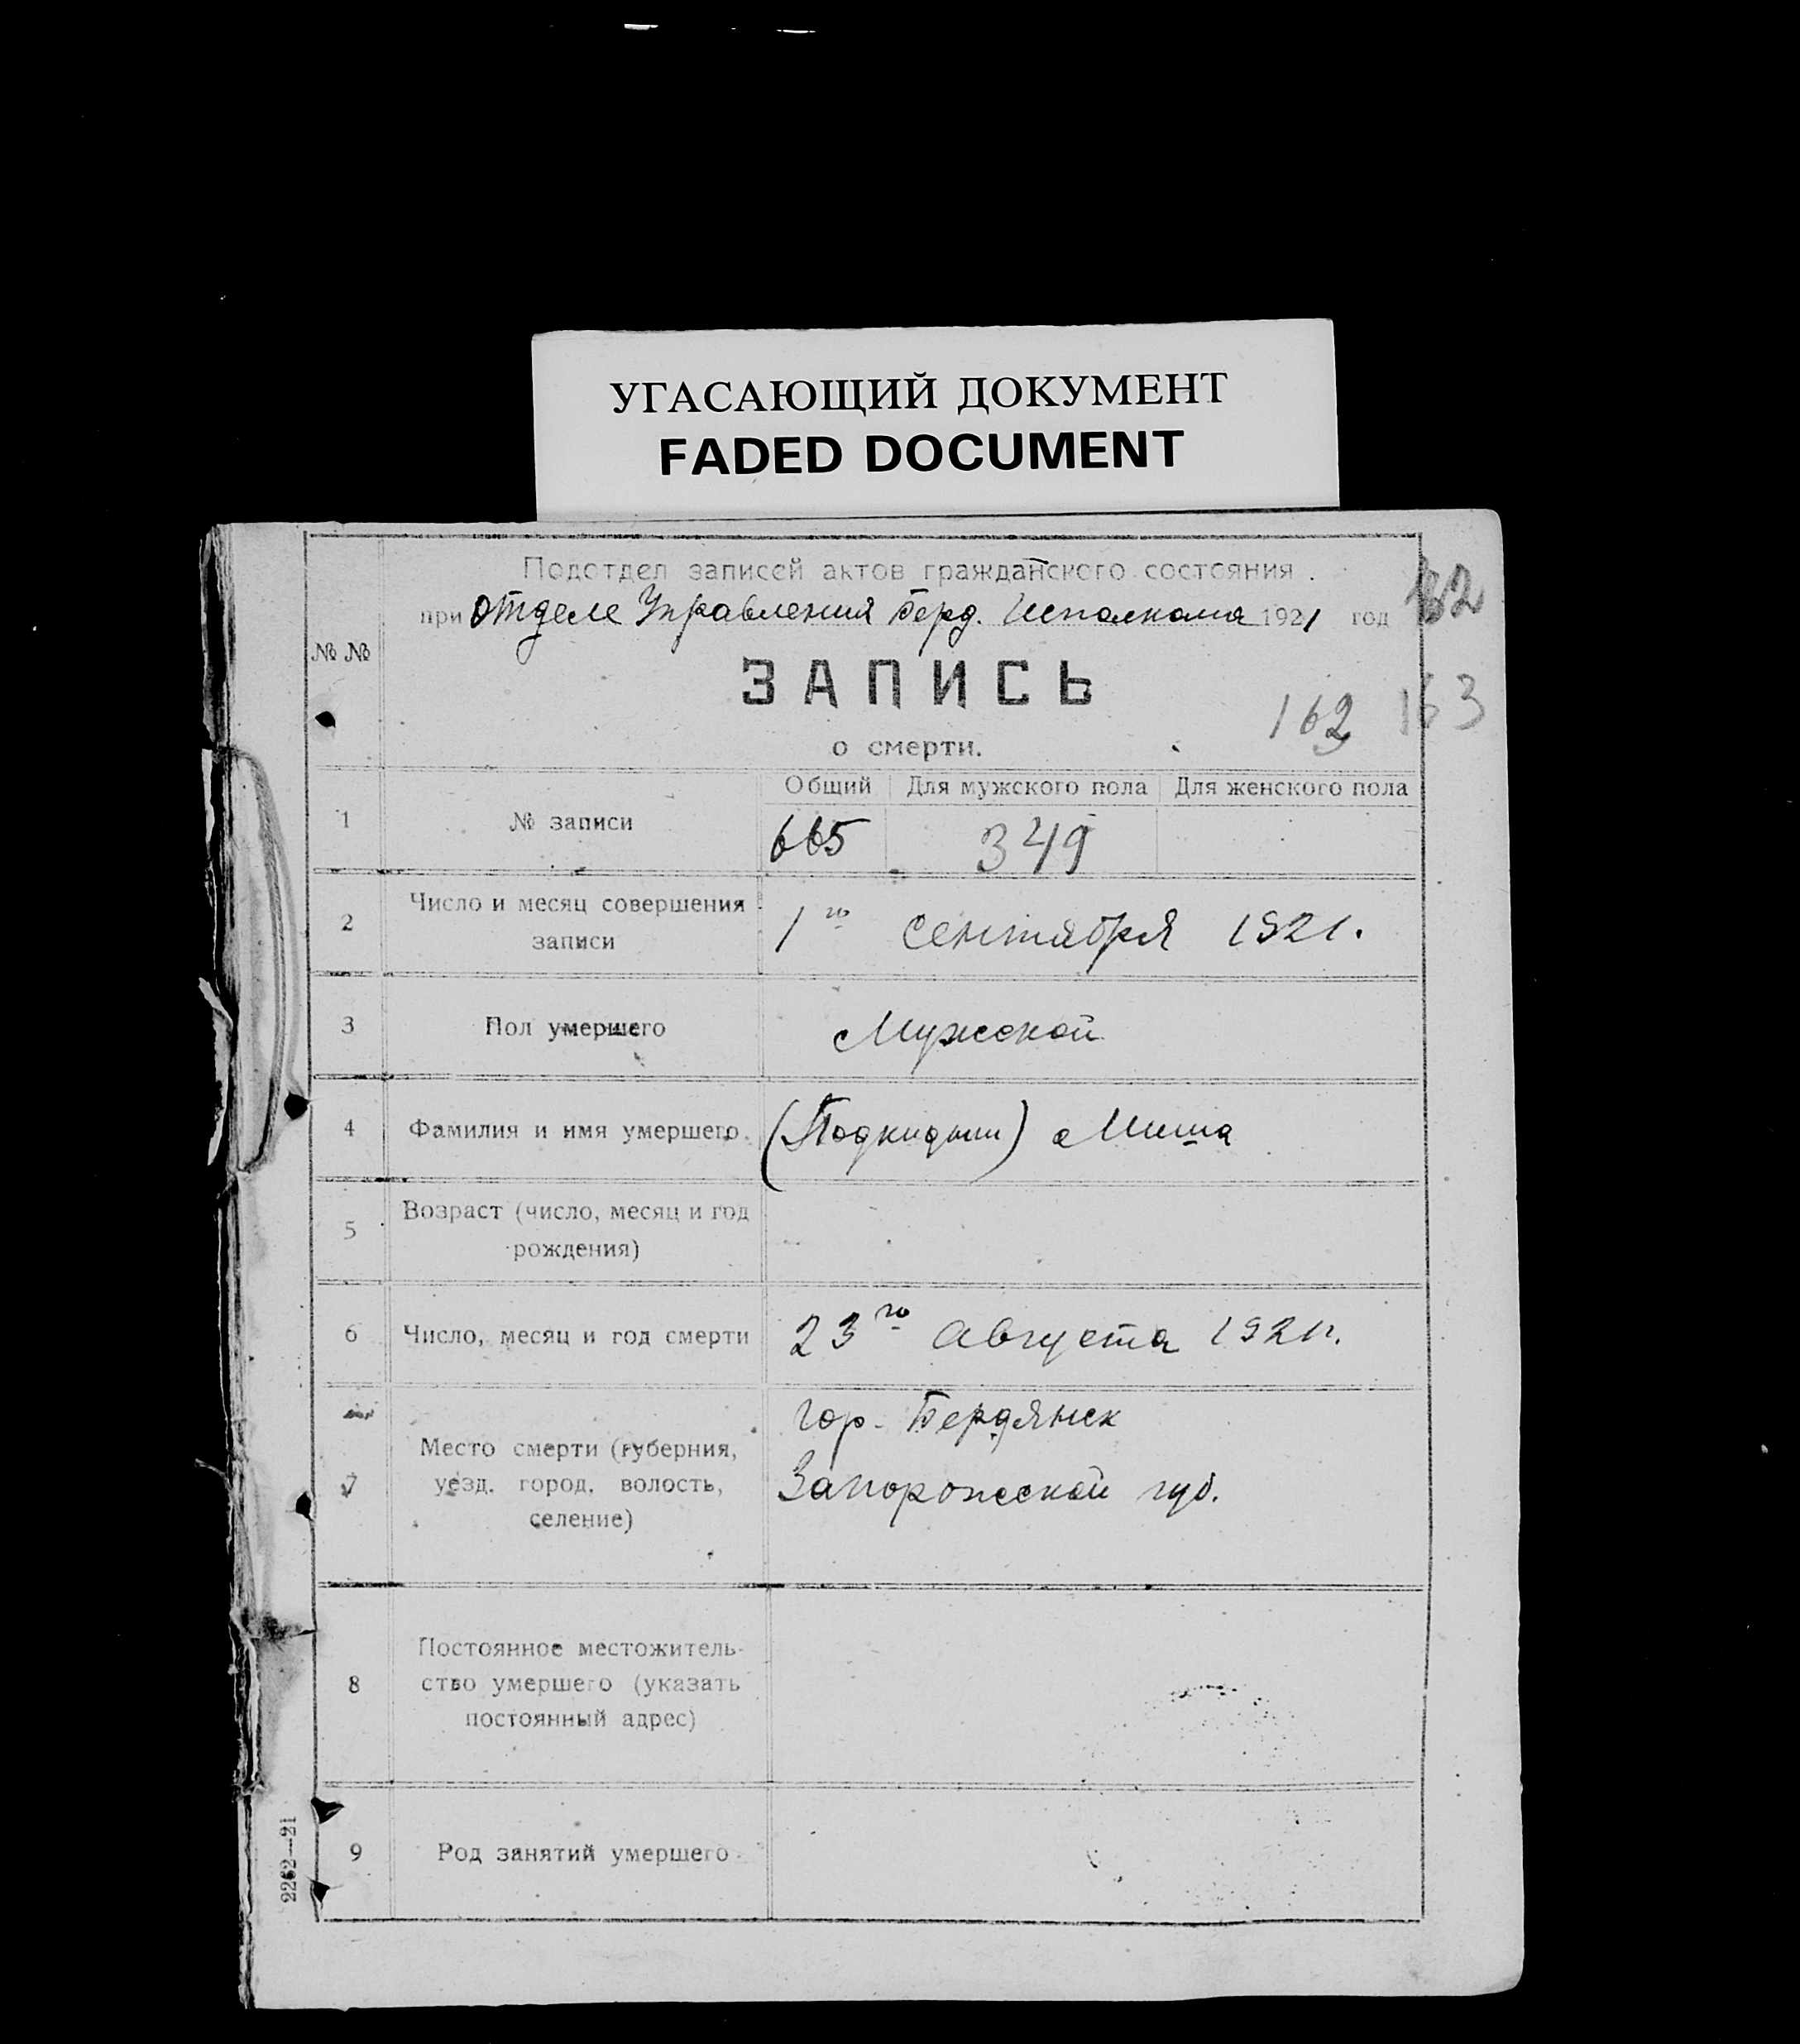 УГАСАЮЩИЙ ДОКУМЕНТ
FADED DOCUMENT
Подотдел записей актов гражданского состояния.
при отделе Управления Берд. Исполкома 1921 год
№ №
ЗАПИСЬ
162 163
о смерти.
Общий Для мужского пола Для женского пола
1 № записи 665 349
2 Число и месяц совершения записи 1го сентября 1921.
3 Пол умершего Мужской
4 Фамилия и имя умершего. (Подкидыш) Миша
5 Возраст (число, месяц и год рождения)
6 Число, месяц и год смерти 23го августа 1921г.
7 Место смерти (губерния, уезд, город, волость, селение) гор. Бердянск
Запорожской губ.
8 Постоянное местожитель-
ство умершего (указать
постоянный адрес)
9 Род занятий умершего
2262—21